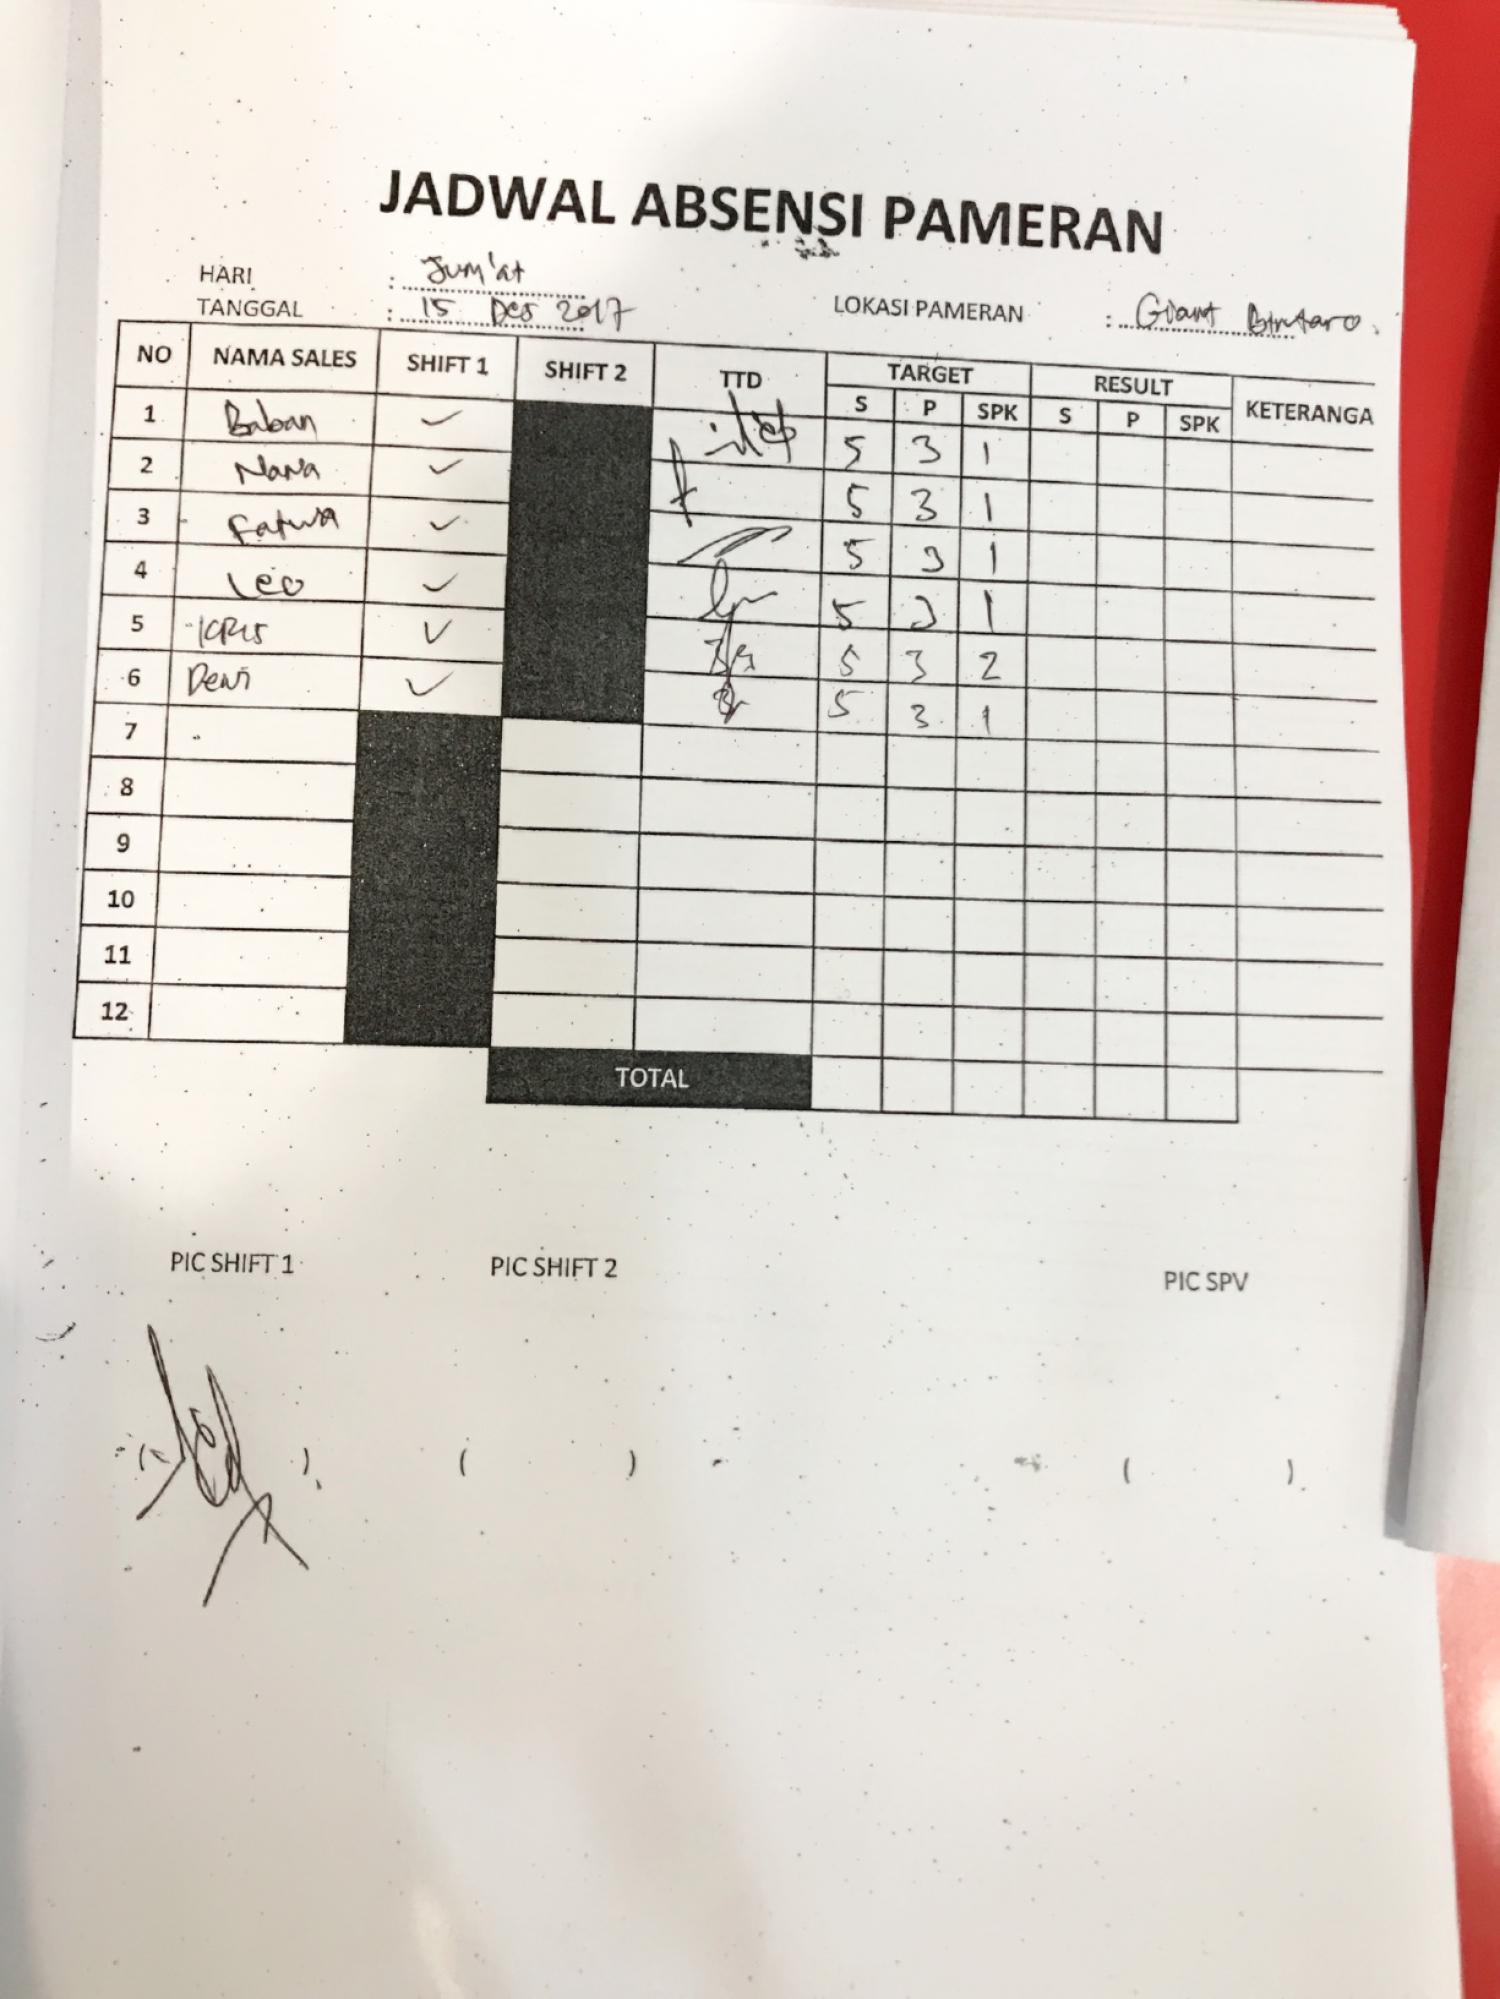 JADWAL ABSENSI PAMERAN
HARI : Jum'at
TANGGAL : 15 Des 2017 LOKASI PAMERAN : Giant Bintaro.
NO NAMA SALES SHIFT 1 SHIFT 2 TTD TARGET RESULT KETERANGA
S P SPK S P SPK
1 Baban ✓ 5 3 1
2 Nana ✓ 5 3 1
3 Fatwa ✓ 5 3 1
4 Leo ✓ 5 3 1
5 KRIS ✓ 5 3 2
6 Dewi ✓ 5 3 1
7
8
9
10
11
12
TOTAL
PIC SHIFT 1 PIC SHIFT 2 PIC SPV
( ) ( ) ( )